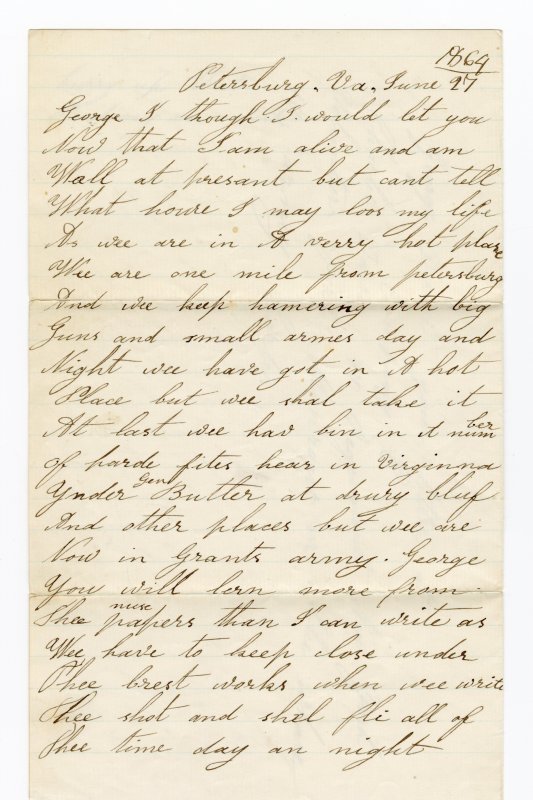 1864
Petersburg. Va. June 27
George I though I would let you
Now that I am alive and am
Wall at presant but cant tell
What houre I may loos my life
As wee are in A verry hot place
Wee are one mile from petersburg
And wee keep hamering with big
Guns and small armes day and
Night wee have got in A hot
Place but wee shal take it
At last wee hav bin in A number
of harde fites hear in Virginna
Ynder Gen Butler at drury bluf
And other places but wee are
Now in Grants army. George
You will lern more from
Thee nuse papers than I can write as
Wee have to keep close under
Thee brest works when wee write
Thee shot and shel fli all of
Thee time day an night